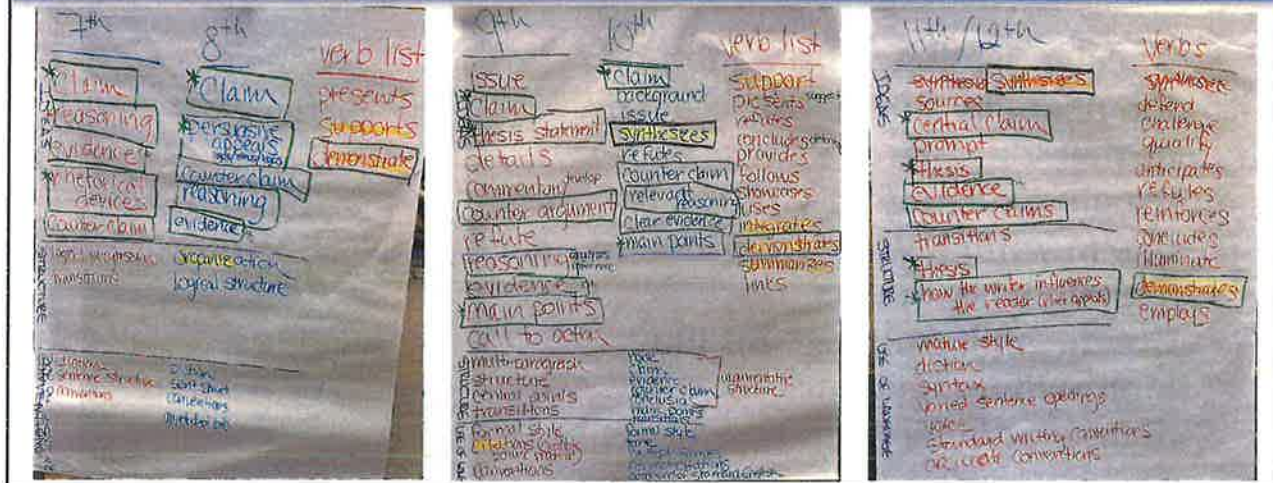 7th
8th
verb list
*Claim
reasoning
evidence
*rhetorical
devices
Counterclaim
transitions
sentence structure
conventions
*Claim
*persuasive
appeals
counterclaim
reasoning
evidence
organization
logical structure
Diction
sent. struct
conventions
presents
supports
demonstrate
9th
10th
verb list
issue
*Claim
*thesis statement
details
commentary develop
counter argument
refute
reasoning
evidence
*main points
call to action
multi-paragraph
structure
central points
transitions
formal style
conventions
*claim
background
issue
synthesees
refutes
counterclaim
relevant
reasoning
clear evidence
*main points
evidence
counter claim
conclusion
main points
transitions
formal style
tone
argumentative
structure
support
presents suggest
provides
follows
showcases
uses
integrates
demonstrates
summarizes
links
11th/12th
Verbs
IDEAS
synthesis synthesees
sources
*central claim
prompt
*thesis
evidence
counter claims
STRUCTURE
transitions
*thesis
*how the writer influences
the reader (other appeals)
USE OF LANGUAGE
mature style
diction
syntax
varied sentence openings
voice
standard writing conventions
accurate conventions
synthesees
defend
challenge
qualify
anticipates
refutes
reinforces
concludes
illuminate
demonstrates
employs